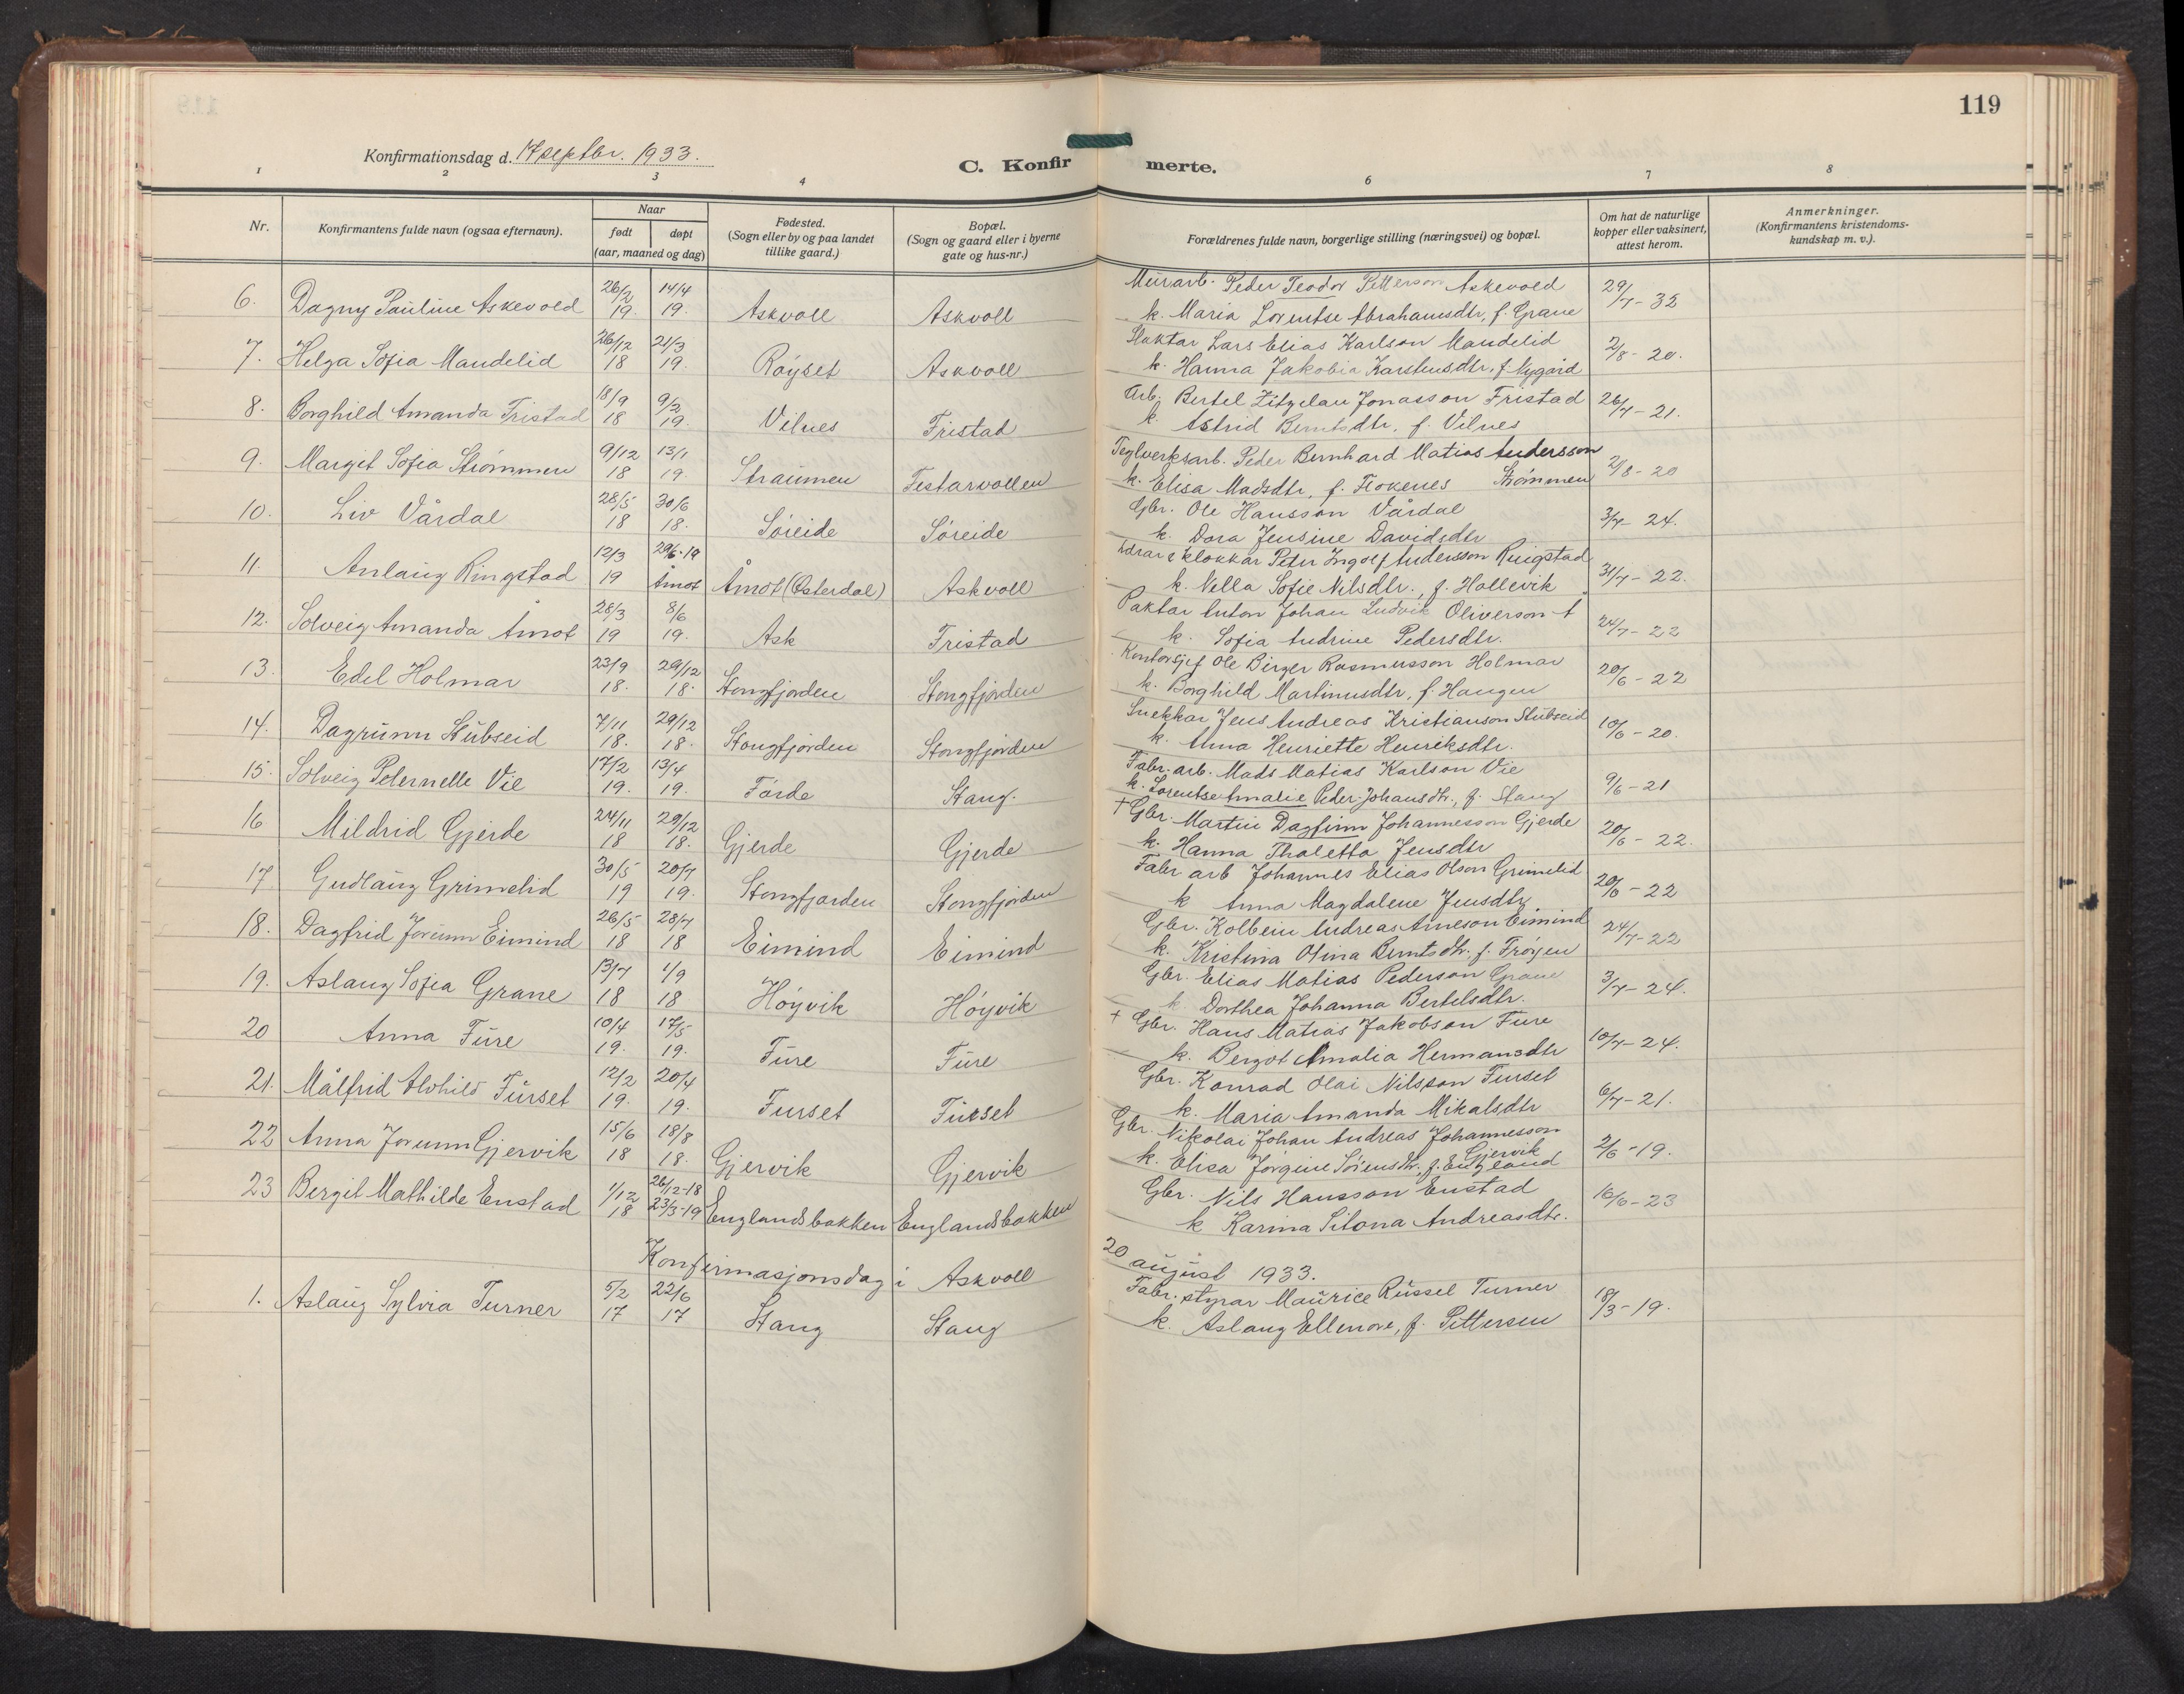 119
Konfirmationsdag d. 17 septbr. 1933.
C. Konfirmerte.
1 2 3 4 6 7 8
Nr.
Konfirmantens fulde navn (ogsaa efternavn).
Naar
født døpt
(aar, maaned og dag)
Fødested.
(Sogn eller by og paa landet
tillike gaard.)
Bopæl.
(Sogn og gaard eller i byerne
gate og hus-nr.)
Forældrenes fulde navn, borgerlige stilling (næringsvei) og bopæl.
Om hat de naturlige
kopper eller vaksinert,
attest herom.
Anmerkninger.
(Konfirmantens kristendoms-
kundskap m. v.).
6. Dagny Pauline Askevold 26/2 19. 14/4 19. Askvoll Askvoll
Murarb. Peder Teodor Petterson Askevold
k. Maria Lorentse Abrahamsdtr, f. Grane 29/7-32
7. Helga Sofia Mandelid 26/12 18 21/3 19. Røyset Askvoll
Slaktar Lars Elias Karlson Mandelid
k. Hanna Jakobia Karstensdtr, f. Nygård 2/8-20.
8. Borghild Amanda Fristad 18/9 18 9/2 19. Vilnes Fristad
Arb. Bertel Zitzelau Jonasson Fristad
k. Astrid Berntsdtr, f. Vilnes 26/7-21.
9. Margit Sofia Strømmen 9/12 18 13/1 19. Straumen Festarvollen
Teglverksarb. Peder Bernhard Matias Andersson
Strømmen
k. Elisa Madsdtr, f. Flokenes 2/8-20
10. Liv Vårdal 28/5 18 30/6 18. Søreide Søreide
Gbr. Ole Hansson Vårdal
k. Dora Jensine Davidsdtr 3/7-24.
11. Anlaug Ringstad 12/3 19 29/6-19 Åmot Åmot (Østerdal) Askvoll
Lærar & klokkar Peter Ingolf Andersson Ringstad
k. Nella Sofie Nilsdtr., f. Hollevik 31/7-22.
12. Solveig Amanda Åmot 28/3 19 8/6 19. Ask Fristad
Paktar Anton Johan Ludvik Oliverson Å
k. Sofia Andrine Pedersdtr. 24/7-22
13. Edel Holmar 23/9 18. 29/12 18. Stongfjorden Stongfjorden
Kontorsjef Ole Birger Rasmusson Holmar
k. Borghild Martinusdtr, f. Haugen 20/6-22
14. Dagrunn Stubseid 7/11 18. 29/12 18. Stongfjorden Stongfjorden
Snekkar Jens Andreas Kristianson Stubseid
k. Anna Henriette Henriksdtr. 10/6-20.
15. Solveig Peternelle Vie 17/2 19. 13/4 19. Førde Stang.
Fabr. arb. Mads Matias Karlson Vie
k. Lorentse Amalie Peder-Johansdtr., f. Stang 9/6-21
16 Mildrid Gjerde 24/11 18 29/12 18. Gjerde Gjerde
+ Gbr. Martin Dagfinn Johannesson Gjerde
k. Hanna Thaletta Jensdtr 20/6-22.
17 Gudlaug Grimelid 30/5 19 20/7 19. Stongfjorden Stongfjorden
Fabr arb Johannes Elias Olson Grimelid
k Anna Magdalene Jensdtr 20/6-22
18. Dagfrid Jorunn Eimind 26/5 18 28/7 18 Eimind Eimind
Gbr. Kolbein Andreas Arneson Eimind
k. Kristina Olina Berntsdtr. f. Frøyen 24/7-22
19. Aslaug Sofia Grane 13/7 18 1/9 18 Høyvik Høyvik
Gbr. Elias Matias Pederson Grane
k. Dorthea Johanna Bertelsdtr. 3/7-24.
20 Anna Fure 10/4 19. 17/5 19. Fure Fure
+ Gbr. Hans Matias Jakobson Fure
k. Bergot Amalia Hermansdtr 10/7-24.
21. Målfrid Alvhild Furset 12/2 19. 20/4 19. Furset Furset
Gbr. Konrad Olai Nilsson Furset
k. Maria Amanda Mikalsdtr 6/7-21.
22 Anna Jorunn Gjervik 15/6 18 18/8 18. Gjervik Gjervik
Gbr. Nikolai Johan Andreas Johannesson
Gjervik
k. Elisa Jørgine Sørensdtr, f. Engeland 2/6-19.
23 Bergit Mathilde Enstad 1/12 18 26/12-18 23/3-19 Englandsbakken Englandsbakken
Gbr. Nils Hansson Enstad
k Karina Silona Andreasdtr. 16/6-23
Konfirmasjonsdag i Askvoll 20 august 1933.
1. Aslaug Sylvia Turner 5/2 17 22/6 17 Stang Stang
Fabr. styrar Maurice Russel Turner
k. Aslaug Ellenore, f. Pettersen 18/3-19.